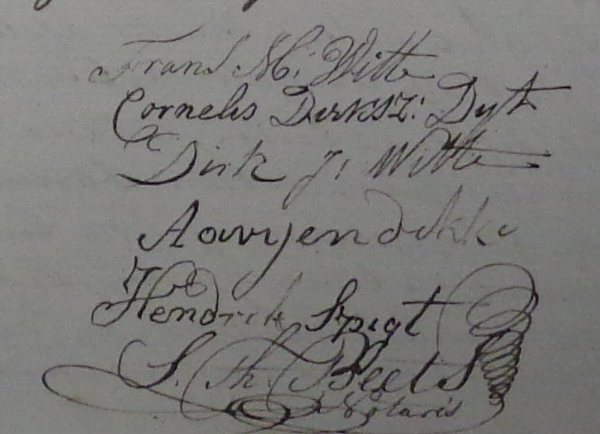 Frans M: Witte
Cornelis Dirksz: Dyt
Dirk J: Witte
Aarijen dekke
Hendrik Spigt
S. Th. Beets
Notaris